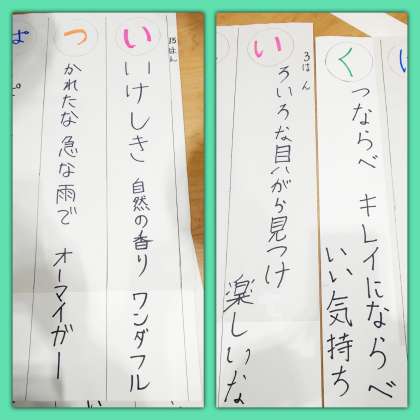 15はん
い いけしき 自然の香り ワンダフル
つ かれたな 急な雨で オーマイガー
く つならべ キレイにならべ いい気持ち
3はん
い ろいろな貝がら見つけ 楽しいな